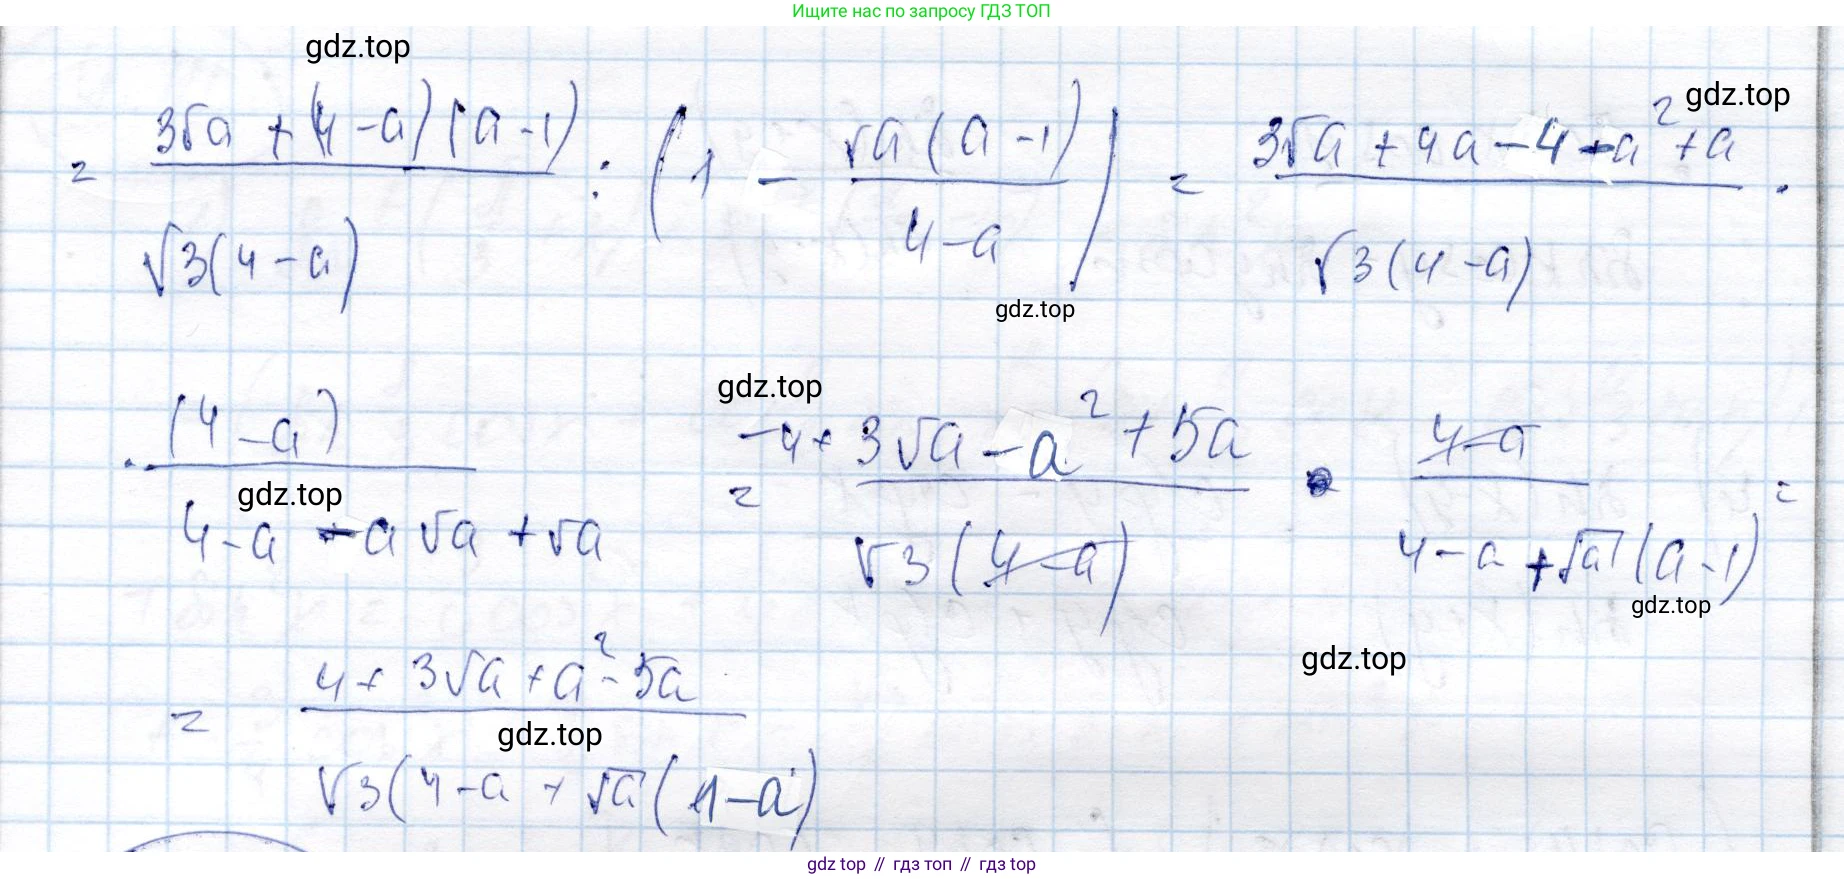 Ищите нас по запросу ГДЗ ТОП
gdz.top
gdz.top
= (3√a + (4-a)(a-1)) / (√3(4-a)) : (1 - √a(a-1) / (4-a)) = (3√a + 4a - 4 - a² + a) / (√3(4-a)) ·
gdz.top
gdz.top
· (4-a) / (4-a - a√a + √a) = (-4 + 3√a - a² + 5a) / (√3(4-a)) · (4-a) / (4-a + √a(a-1)) =
gdz.top
gdz.top
gdz.top
= (4 + 3√a + a² - 5a) / (√3(4-a + √a(1-a))
gdz.top
gdz top // гдз топ // гдз top